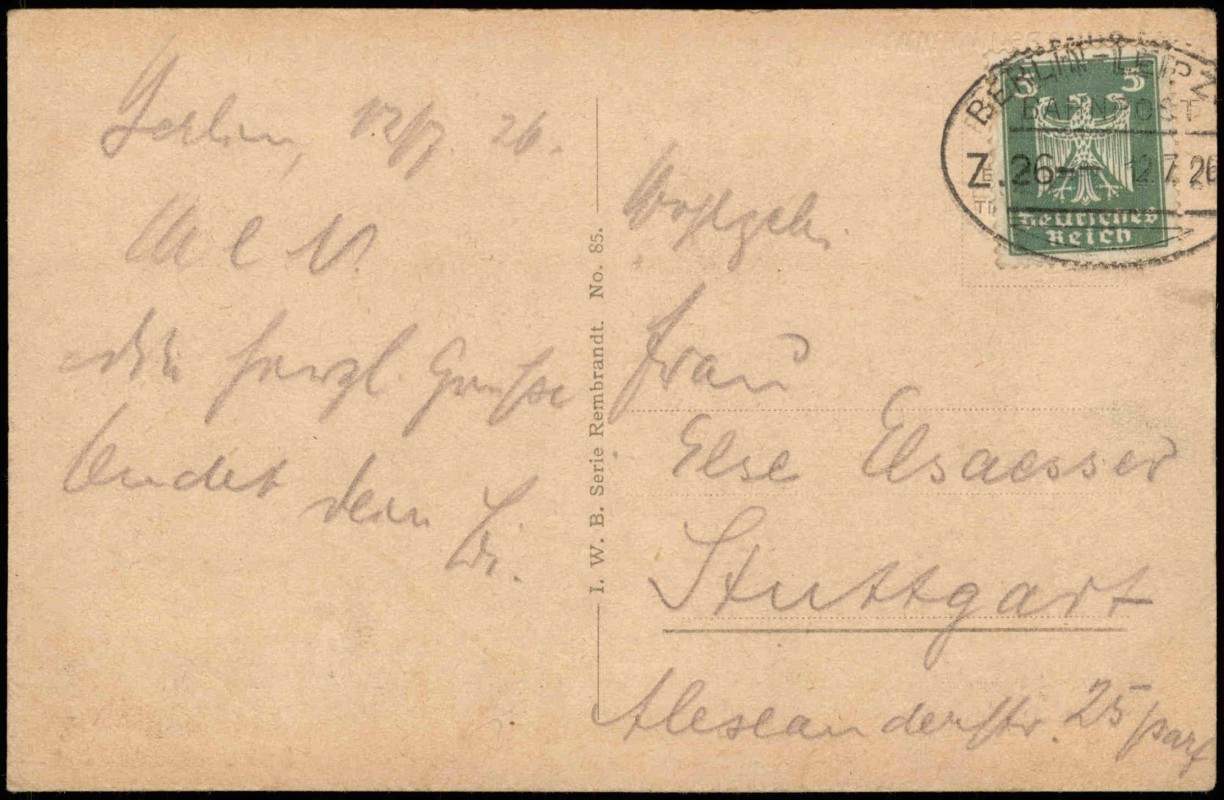 Berlin, 12/7. 26.
M l V.
herzl. Grüsse
sendet dein
I. W. B. Serie Rembrandt. No. 85.
5 5
Deutsches
Reich
BERLIN-LEIPZ
BAHNPOST
Z.26 12.7.26
Wohlgeb.
Frau
Else Elsaesser
Stuttgart
Alexanderstr. 25 part